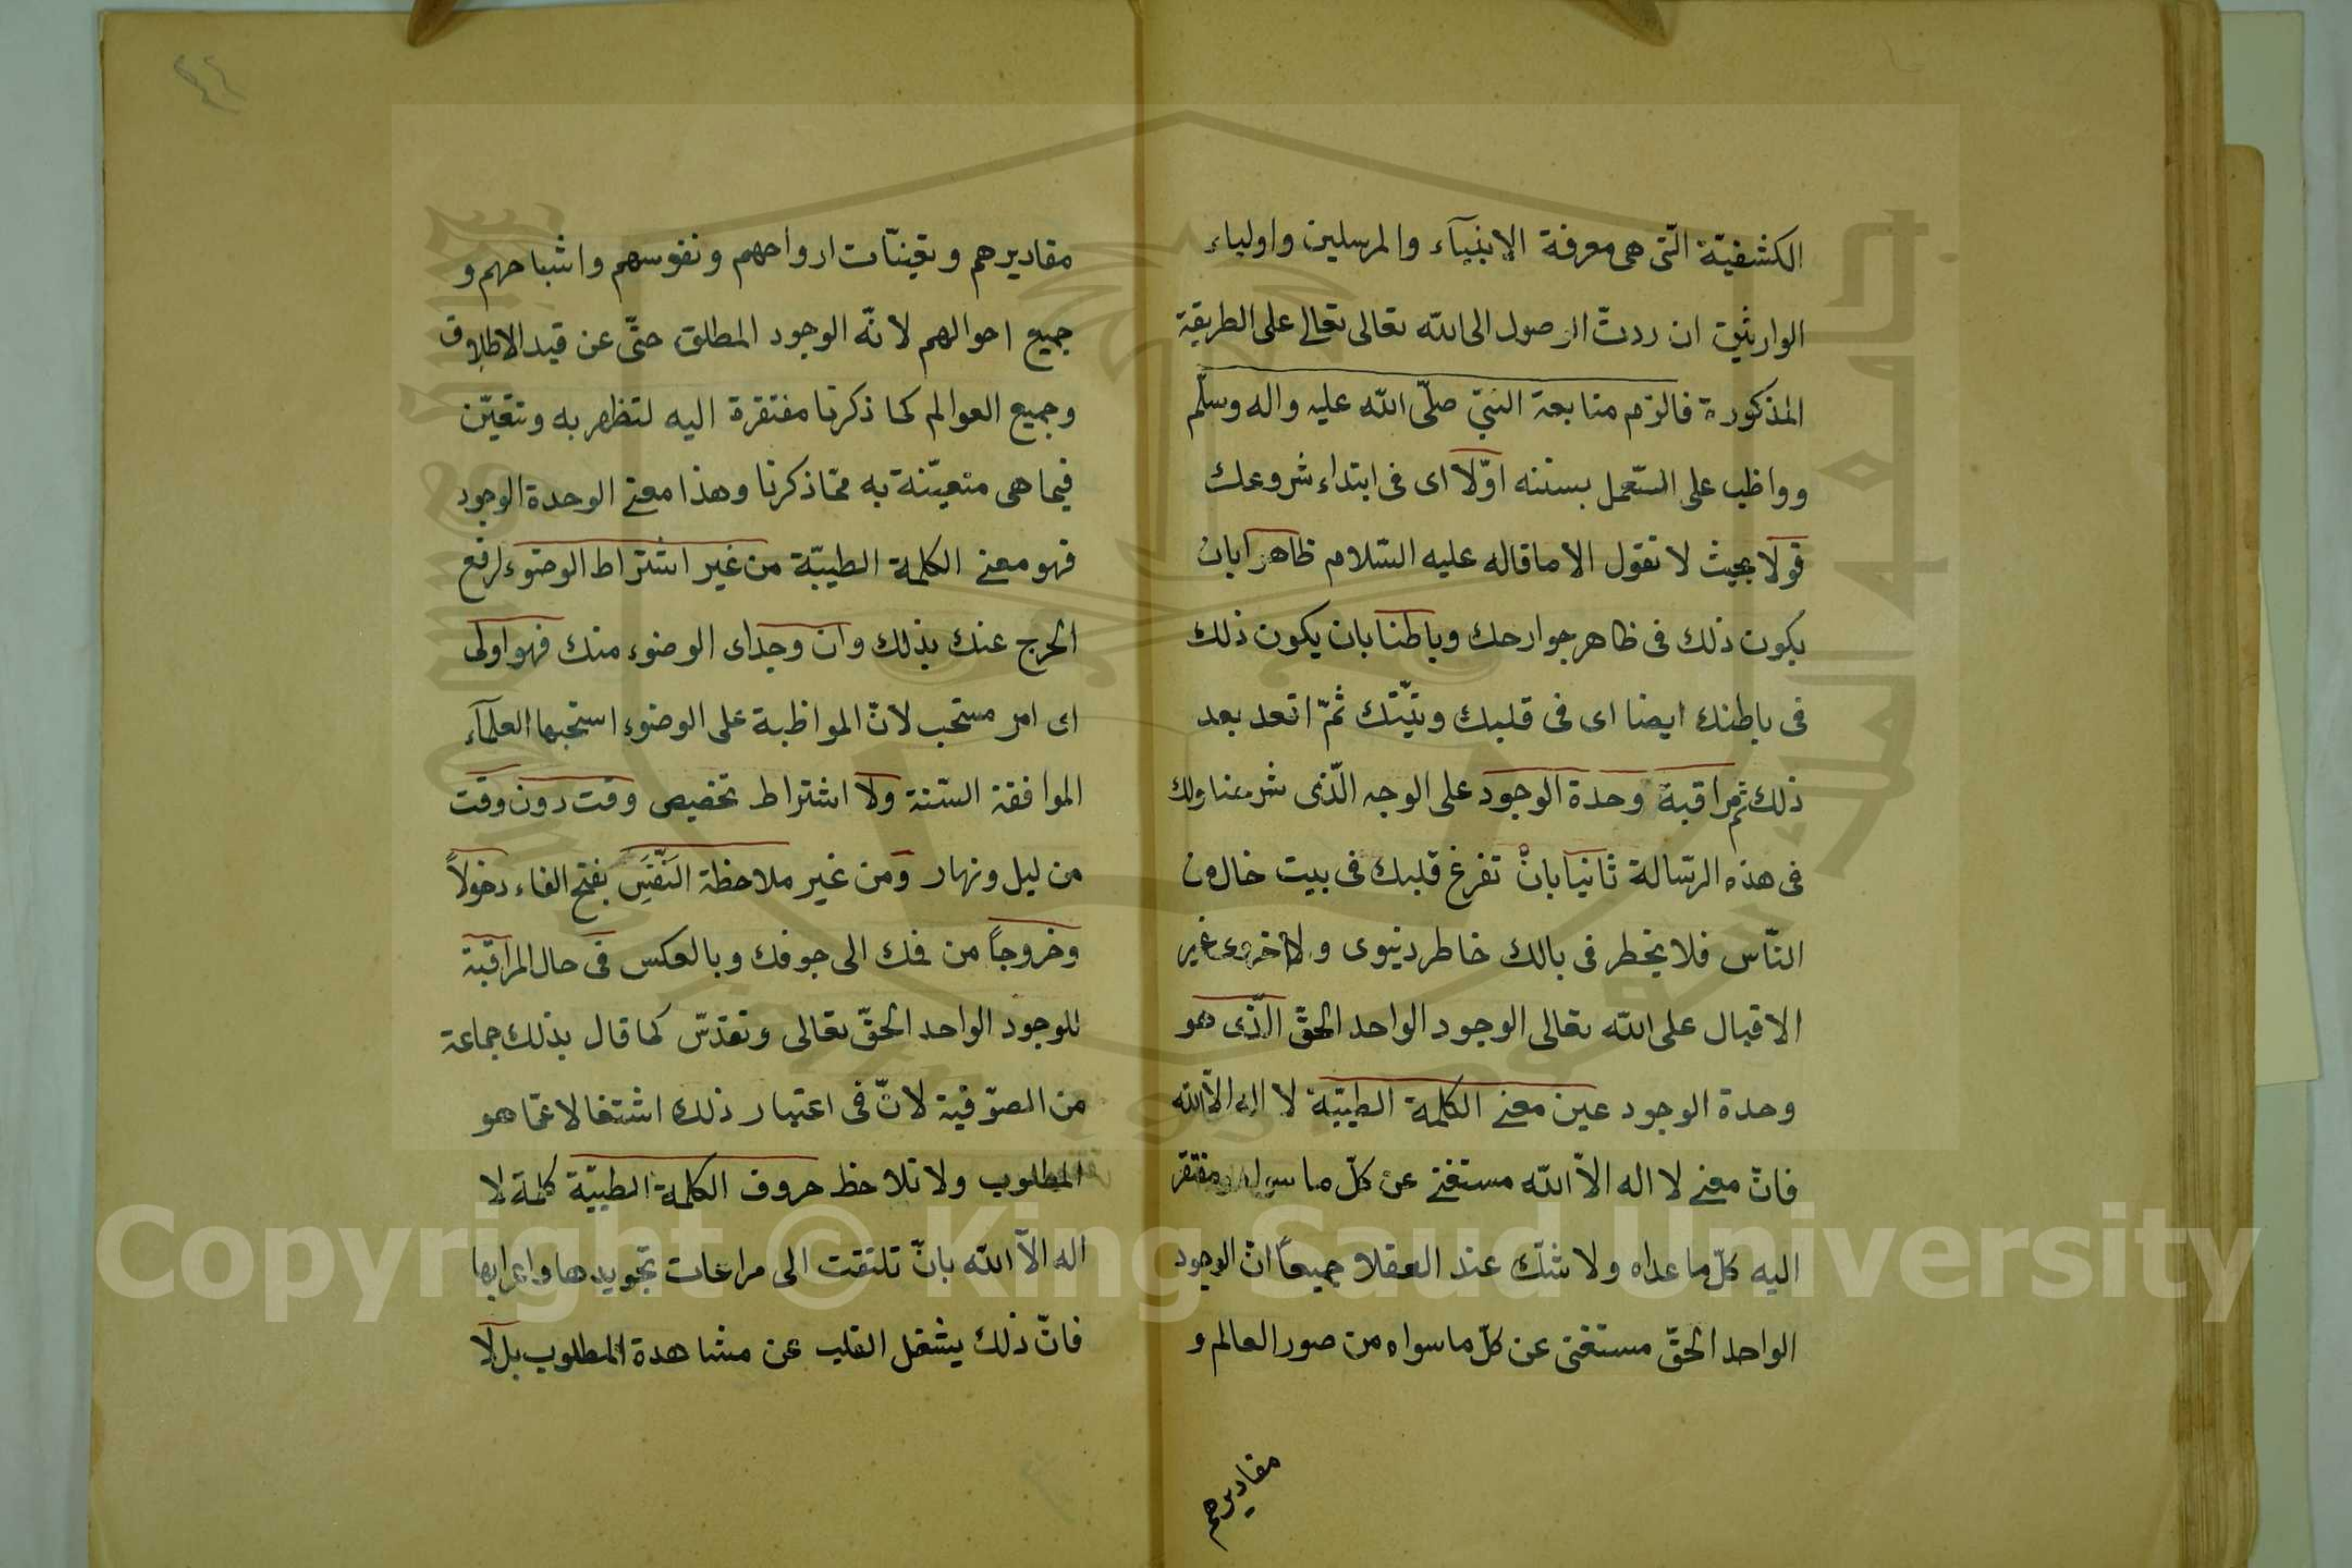 الكشفيّة الّتى هى معرفة الانبيآء والمرسلين واولياء
الوارثين ان ردتّ الوصول الى الله تعالى تعالى على الطريقة
المذكورة فالزم متابعة النبىّ صلّى الله عليه واله وسلّم
وواظب على السّعمل بسننه اوّلا اى فى ابتداء شروعك
قولا بحيث لا تقول الا ما قاله عليه السّلام ظاهرا بان
يكون ذلك فى ظاهر جوارحك وباطنا بان يكون ذلك
فى باطنك ايضا اى فى قلبك ونيّتك ثمّ اتعد بعد
ذلك ثم مراقبة وحدة الوجود على الوجه الّذى شرعنا ولك
فى هذه الرّسالة ثانيا بانْ تفرغ قلبك فى بيت خال من
النّاس فلا يخطر فى بالك خاطر دنيوى ولا اخروى غير
الاقبال على الله تعالى الوجود الواحد الحقّ الّذى هو
وحدة الوجود عين معنى الكلمة الطيّبة لا اله الاّ الله
فانّ معنى لا اله الاّ الله مستغنى عن كلّ ما سواه ومفتقر
اليه كلّ ما عداه ولا شكّ عند العقلا جميعاً انّ الوجود
الواحد الحقّ مستغنى عن كلّ ما سواه من صور العالم و
مقاديرهم
٤٤
مقاديرهم وتعيّنات ارواحهم ونفوسهم واشباحهم و
جميع احوالهم لانّه الوجود المطلق حتّى عن قيد الاطلاق
وجميع العوالم كما ذكرنا مفتقرة اليه لتظهر به وتتعيّن
فيما هى متعيّنة به ممّا ذكرنا وهذا معنى الوحدة الوجود
فهو معنى الكلمة الطيّبة من غير اشتراط الوضوء لرفع
الحرج عنك بذلك وان وجد اى الوضوء منك فهو اولى
اى امر مستحب لانّ المواظبة على الوضوء استحبها العلمآء
الموافقة السّنة ولا اشتراط تخصيص وقت دون وقت
من ليل ونهار ومن غير ملاحظة النّفَسِ بفتح الفاء دخولاً
وخروجاً من فمك الى جوفك وبالعكس فى حال المراقبة
للوجود الواحد الحقّ تعالى وتقدّس كما قال بذلك جماعة
من الصّوفية لانّ فى اعتبار ذلك اشتغالا عمّا هو
المطلوب ولا تلاحظ حروف الكلمة الطيّبة كلمة لا
اله الاّ الله بانّ تلتفت الى مراعات تجويدها واعرابها
فانّ ذلك يشغل القلب عن مشاهدة المطلوب بل لا
Copyright © King Saud University